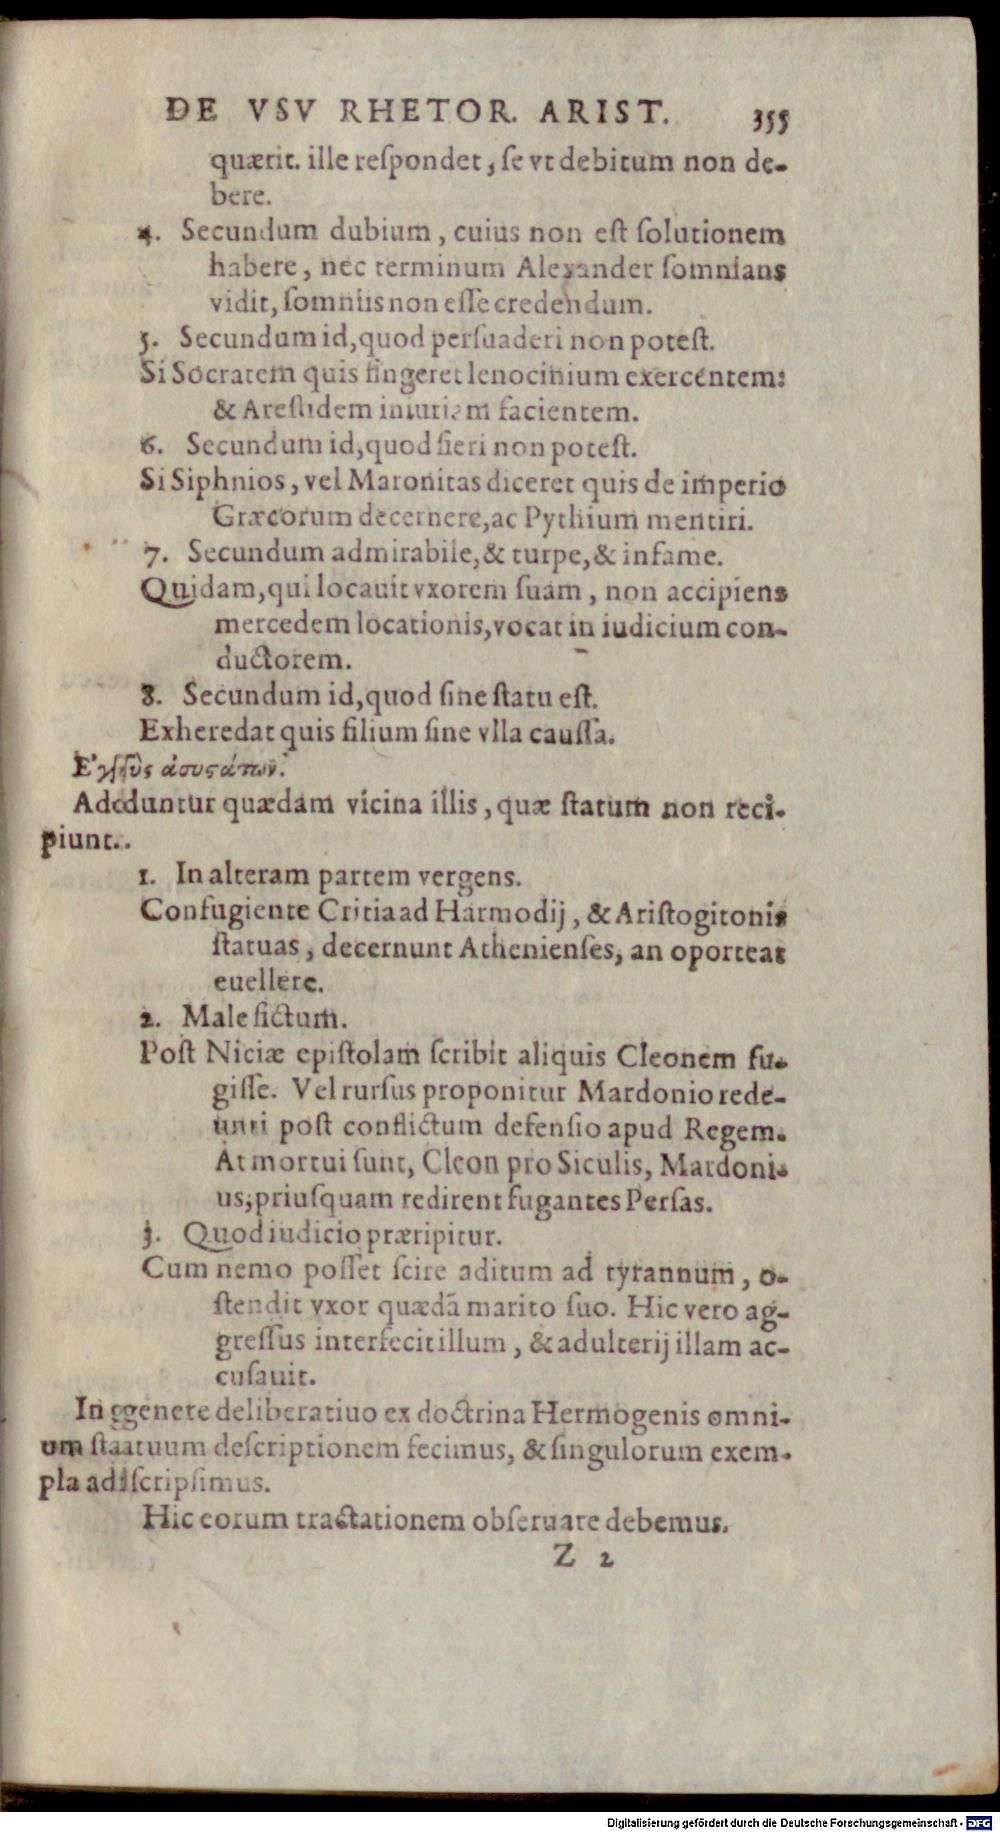 DE VSV RHETOR. ARIST. 355
quærit. ille reſpondet, ſe vt debitum non de-
bere.
4. Secundum dubium, cuius non eſt ſolutionem
habere, nec terminum Alexander ſomnians
vidit, ſomniis non eſſe credendum.
5. Secundum id, quod perſuaderi non poteſt.
Si Socratem quis fingeret lenocinium exercentem:
& Areſtidem iniuriam facientem.
6. Secundum id, quod fieri non poteſt.
Si Siphnios, vel Maronitas diceret quis de imperio
Græcorum decernere, ac Pythium mentiri.
7. Secundum admirabile, & turpe, & infame.
Quidam, qui locauit vxorem ſuam, non accipiens
mercedem locationis, vocat in iudicium con-
ductorem.
8. Secundum id, quod ſine ſtatu eſt.
Exheredat quis filium ſine vlla cauſſa.
Ἐγγὺς ἀσυστάτων.
Adduntur quædam vicina illis, quæ ſtatum non reci-
piunt.
1. In alteram partem vergens.
Confugiente Critia ad Harmodij, & Ariſtogitonis
ſtatuas, decernunt Athenienſes, an oporteat
euellere.
2. Male fictum.
Poſt Niciæ epiſtolam ſcribit aliquis Cleonem fu-
giſſe. Vel rurſus proponitur Mardonio rede-
unti poſt conflictum defenſio apud Regem.
At mortui ſunt, Cleon pro Siculis, Mardoni-
us, priuſquam redirent fugantes Perſas.
3. Quod iudicio præripitur.
Cum nemo poſſet ſcire aditum ad tyrannum, o-
ſtendit vxor quædā marito ſuo. Hic vero ag-
greſſus interfecit illum, & adulterij illam ac-
cuſauit.
In genere deliberatiuo ex doctrina Hermogenis omni-
um ſtatuum deſcriptionem fecimus, & ſingulorum exem-
pla adſcripſimus.
Hic eorum tractationem obſeruare debemus.
Z 2
Digitalisierung gefördert durch die Deutsche Forschungsgemeinschaft - DFG